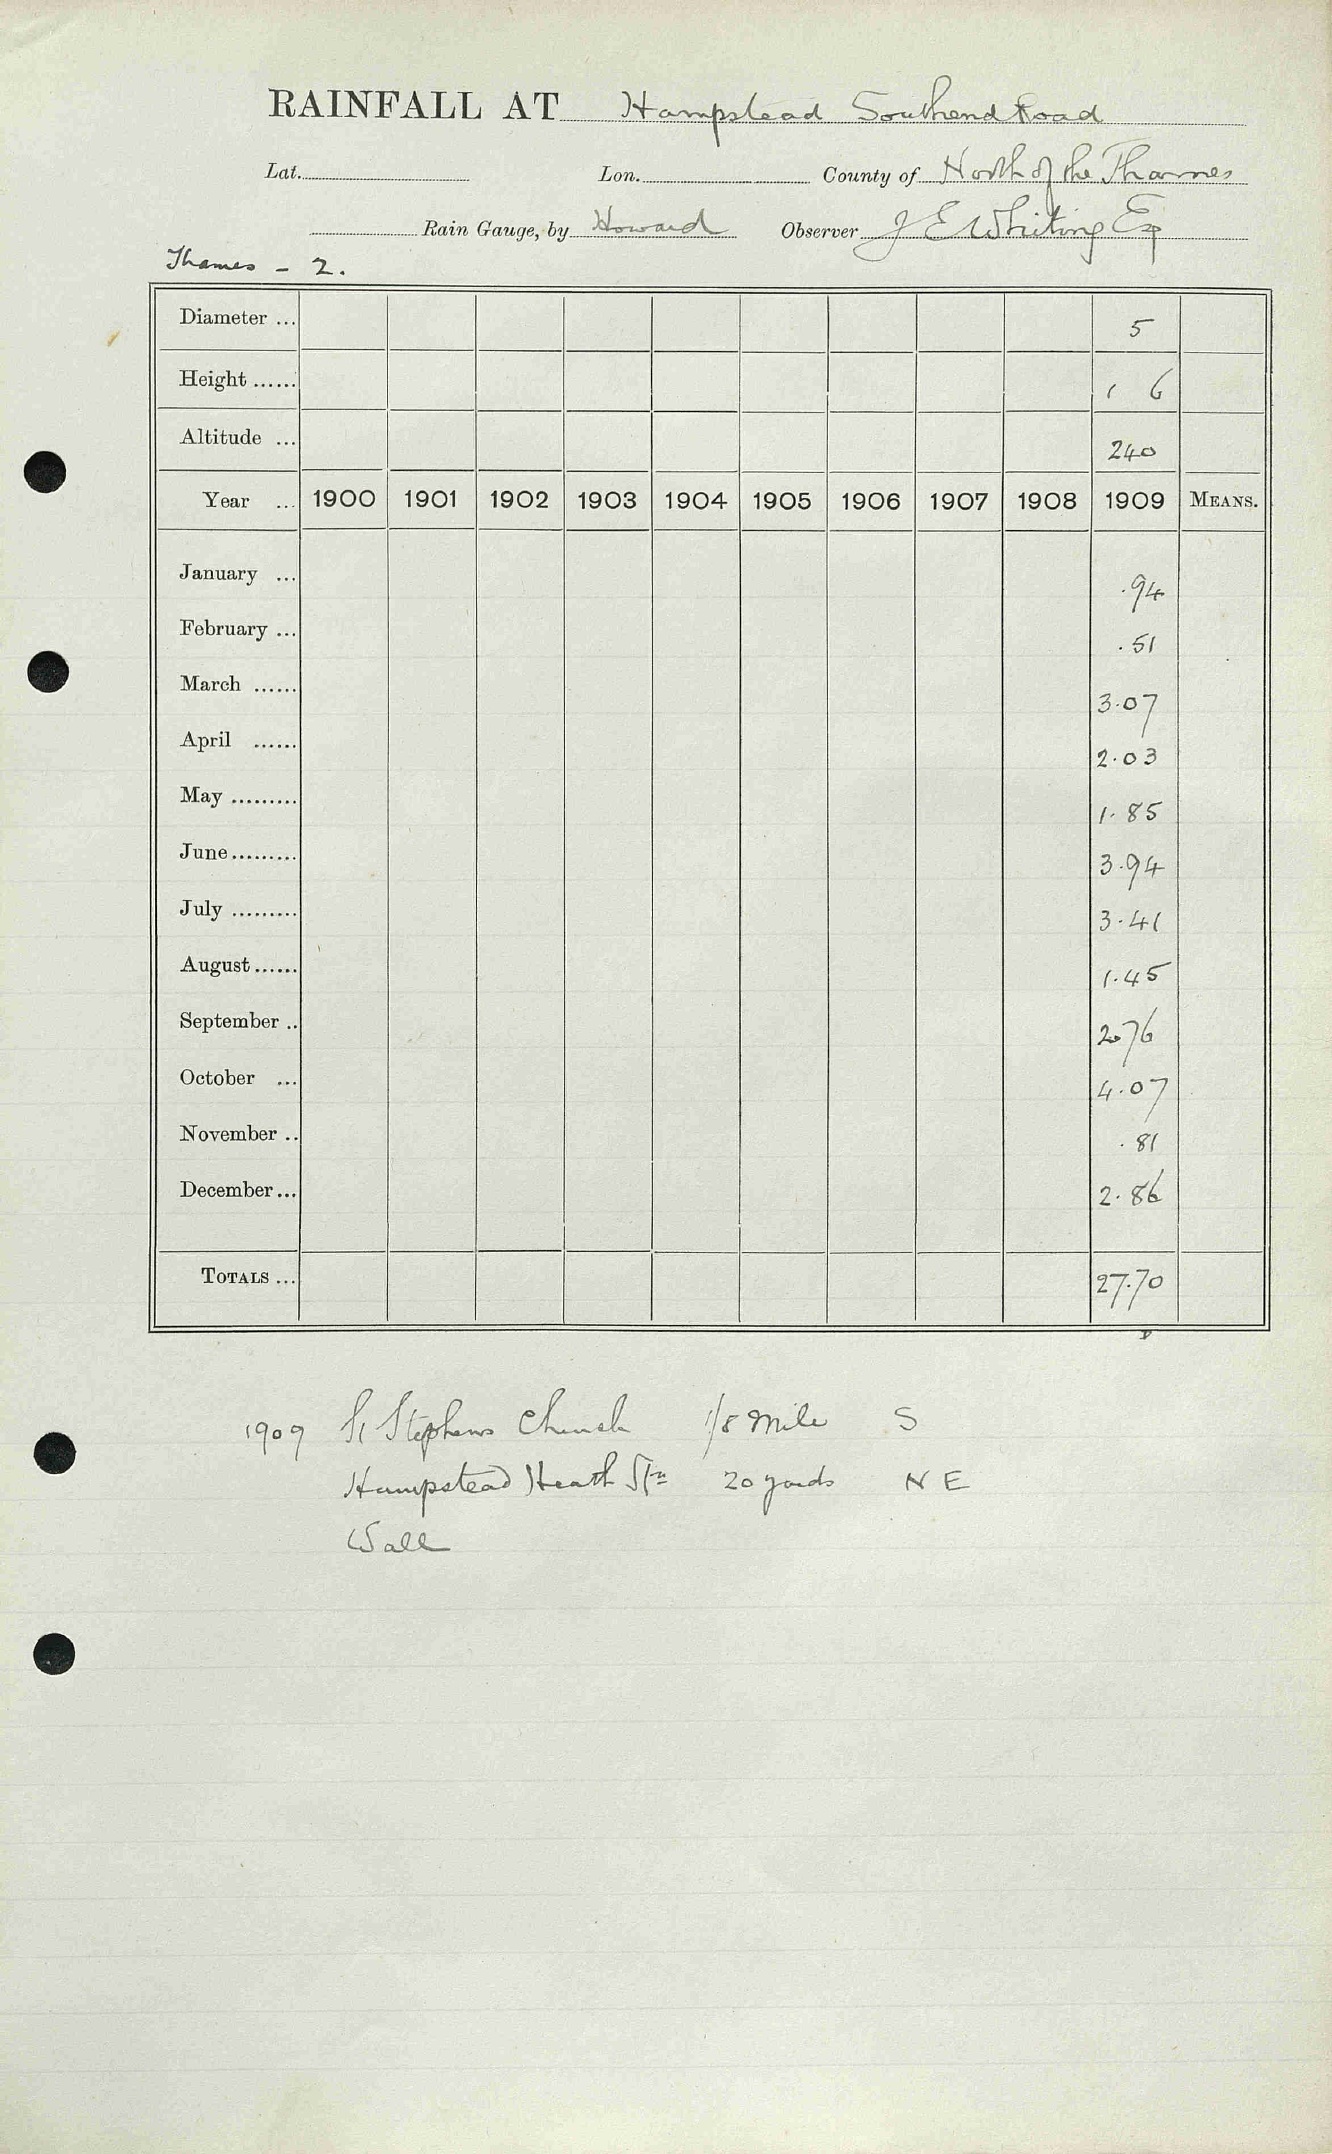 RAINFALL AT Hampstead Southend Road
Lat. Lon. County of North of the Thames
Rain Gauge, by Howard Observer J E Whiting Esq
Thames - 2.
Diameter ... 5
Height ...... 1 6
Altitude ... 240
Year ... 1900 1901 1902 1903 1904 1905 1906 1907 1908 1909 MEANS.
January ... .94
February ... .51
March ...... 3.07
April ...... 2.03
May ......... 1.85
June ......... 3.94
July ......... 3.41
August ...... 1.45
September .. 2.76
October ... 4.07
November .. .81
December ... 2.86
TOTALS ... 27.70
1909 St Stephens Church 1/8 mile S
Hampstead Heath Stn 20 yards N E
Wall